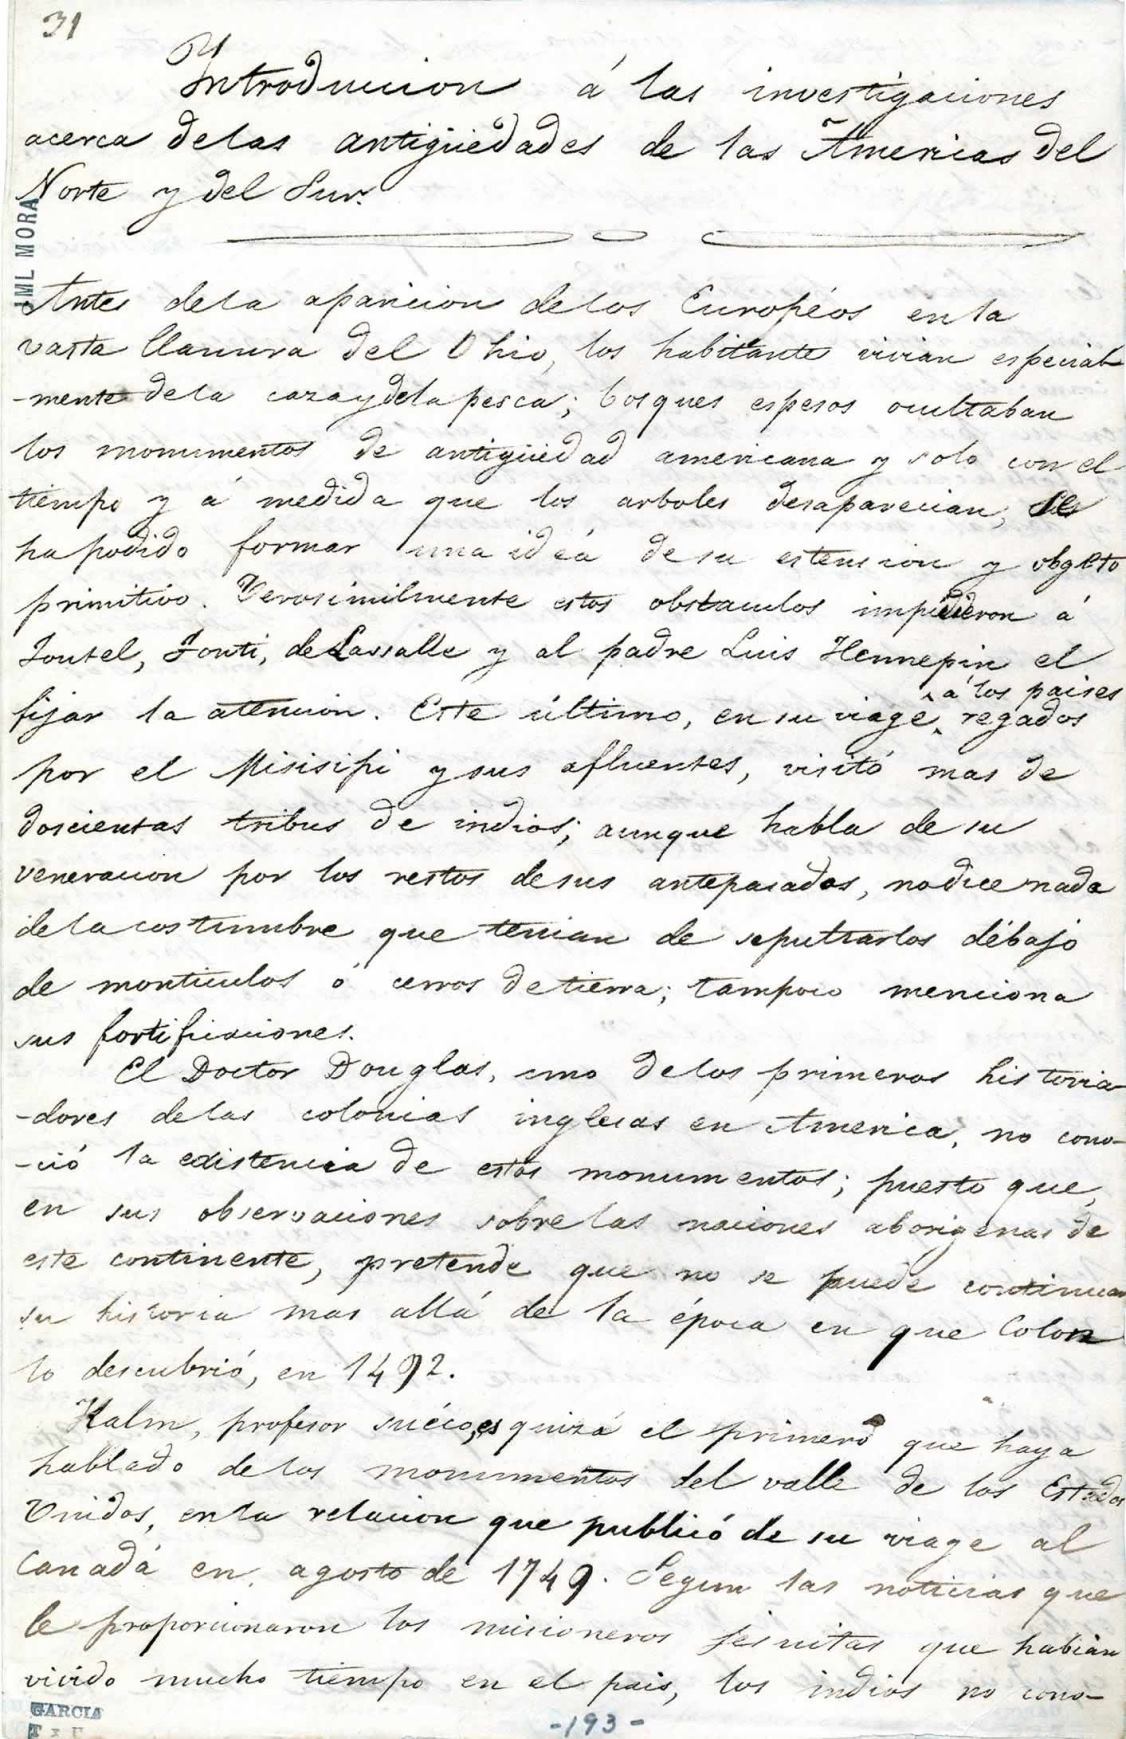 31
Introduccion á las investigaciones
acerca de las antigüedades de las Americas del
Norte y del Sur.
JML MORA
Antes de la aparicion de los Européos en la
vasta llanura del Ohio, los habitante vivian especial-
-mente de la caza y de la pesca; bosques espesos ocultaban
los monumentos de antigüedad americana y solo con el
tiempo y á medida que los arboles desaparecian, se
ha podido formar una ideá de su estension y obgeto
primitivo. Verosimilmente estos obstaculos impidieron á
Joutel, Tonti, de Lassalle y al padre Luis Hennepin el
fijar la atencion. Este último, en su viage á los paises regados
por el Misisipi y sus afluentes, visitó mas de
doscientas tribus de indios; aunque habla de su
veneracion por los restos de sus antepasados, no dice nada
de la costumbre que tenian de sepultarlos débajo
de monticulos ó cerros de tierra; tampoco menciona
sus fortificaciones.
El Doctor Douglas, uno de los primeros historia-
-dores de las colonias inglesas en America, no cono-
-ció la existencia de estos monumentos; puesto que,
en sus observaciones sobre las naciones aborigenas de
este continente, pretende que no se puede continuar
su historia mas allá de la época en que Colon
lo descubrió, en 1492.
Kalm, profesor suéco, es quizá el primero que haya
hablado de los monumentos del valle de los Estados
Unidos, en la relacion que publicó de su viage al
Canadá en agosto de 1749. Segun las noticias que
le proporcionaron los misioneros jesuitas que habian
vivido mucho tiempo en el pais, los indios no cono-
GARCIA
-193-